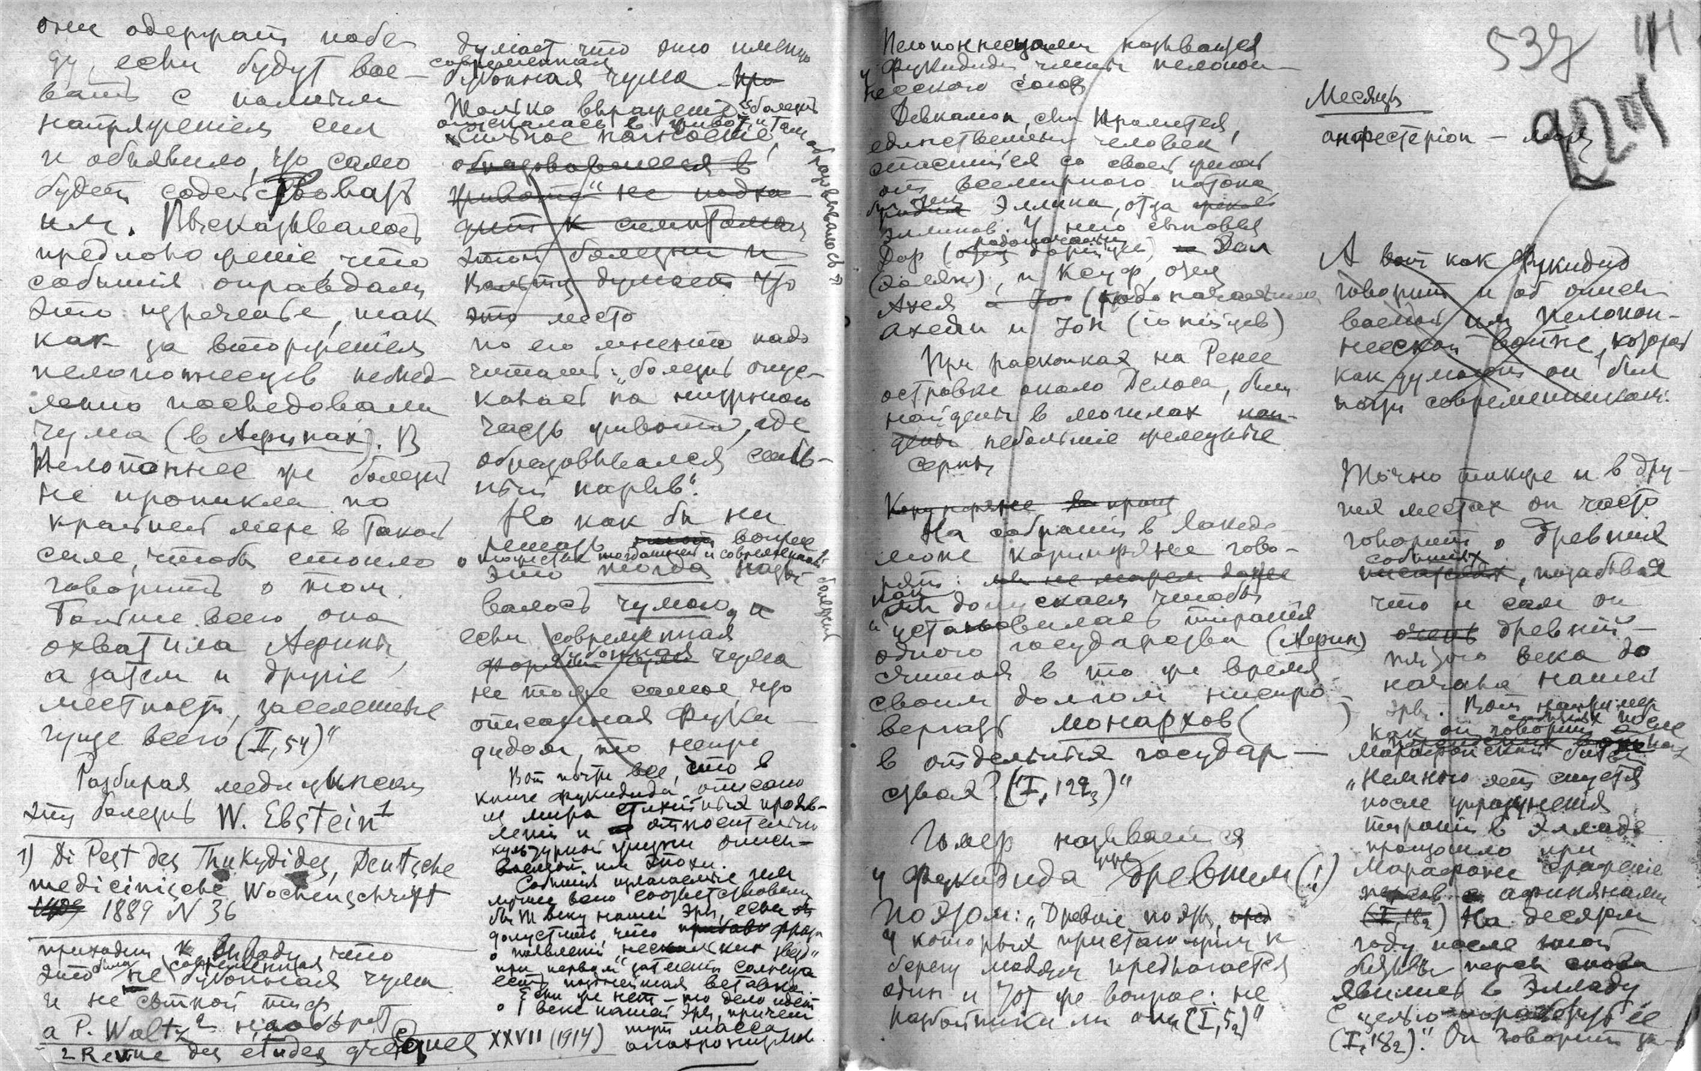 они одержат побе-
ду, если будут вое-
вать с полным
напряжением сил
и объявило, что само
будет содействовать
им. Высказывалось
предположение, что
события оправдали
это изречение, так
как за вторжением
пелопоннесцев немед-
ленно последовала
чума (в Афинах). В
Пелопоннес же болезнь
не проникла по
крайней мере в такой
силе, чтобы стоило
говорить о том.
Больше всего она
охватила Афины,
а затем и другие
местности, заселенные
гуще всего (II, 54)"
Разбирая медицински
эту болезнь W. Ebstein 1
1) Di Pest des Thukydides, Deutsche
medicinische Wochenschrift
1889 N 36
приходит к выводу что
это была не современная бубонная чума
и не сыпной тиф,
а P. Waltz 2 наоборот
2 Revue des études grecques XXVII (1914)
думает что это именно
современная
бубонная чума
Только выражение "болезнь
сильное
образовавшееся в
животе" не подхо-
дит к симптомам
этой болезни и
Вальтц думает что
это место
по его мнению надо
читать: "болезнь опус-
кает на нижнюю
часть живота, где
образовывался силь-
ный нарыв".
Но как бы ни
решать вопрос
о тождестве тогдашней и современной болезни
это тогда назы-
валось чумою, и
если современная
бубонная чума
не то же самое что
описанная Фуки-
дидом, то
Вот почти все, что в
книге Фукидида описано
из мира стихийных прояв-
лений и относительно
культурной жизни описы-
ваемой им эпохи.
События излагаемые им
лучше всего соответствовали
бы веку нашей эры, если
допустить что фраза
о появлении нескольких звезд
при первом затмении солнца
есть позднейшая вставка.
Если же нет — то дело идет
о веке нашей эры, причем
тут масса
анахронизмов.
Пелопоннесцами называются
у Фукидида члены пелопон-
неского союза
Девкалион, сын Прометея,
единственный человек,
спасшийся со своей женой
от всемирного потопа,
был отец Эллина, отца
эллинов. У него сыновья
Дор (родоначальник дорийцев) Эол
(эоляне), и Ксуф, отец
Ахея (родоначальника
ахеян и Ион (ионийцев)
При раскопках на Ренее
островке около Делоса, были
найдены в могилах
небольшие железные
серпы
На собрании в Лакеде-
моне коринфяне гово-
рят:
"Мы допускаем чтобы
установилась тирания
одного государства (Афин)
считая в то же время
своим долгом ниспро-
вергать монархов ( )
в отдельных государ-
ствах? (I, 122 3)"
Гомер называется
у Фукидида уже древним (!)
поэтом: "Древние поэты,
у которых пристающим к
берегу людям предлагается
один и тот же вопрос: не
разбойники ли они (I, 5 2)"
537
224
Месяцы
анфестерион — март
А вот как Фукидид
говорит и об описы-
ваемой им пелопон-
неской войне, которой
как думают он был
почти современником:
Точно также и в дру-
гих местах он часто
говорит о древних
событиях, позабывая
что и сам он
древний —
пятого века до
начала нашей
эры. Вот например
как он говорит о событиях после
Марафонской битвы
"Немного лет спустя
после упразднения
тирании в Элладе
произошло при
Марафоне сражение
персов с афинянами
(I, 18 2) На десятом
году после этой
битвы персы снова
явились в Элладу
с целью поработить ее
(I, 18 2)". Он говорит за-